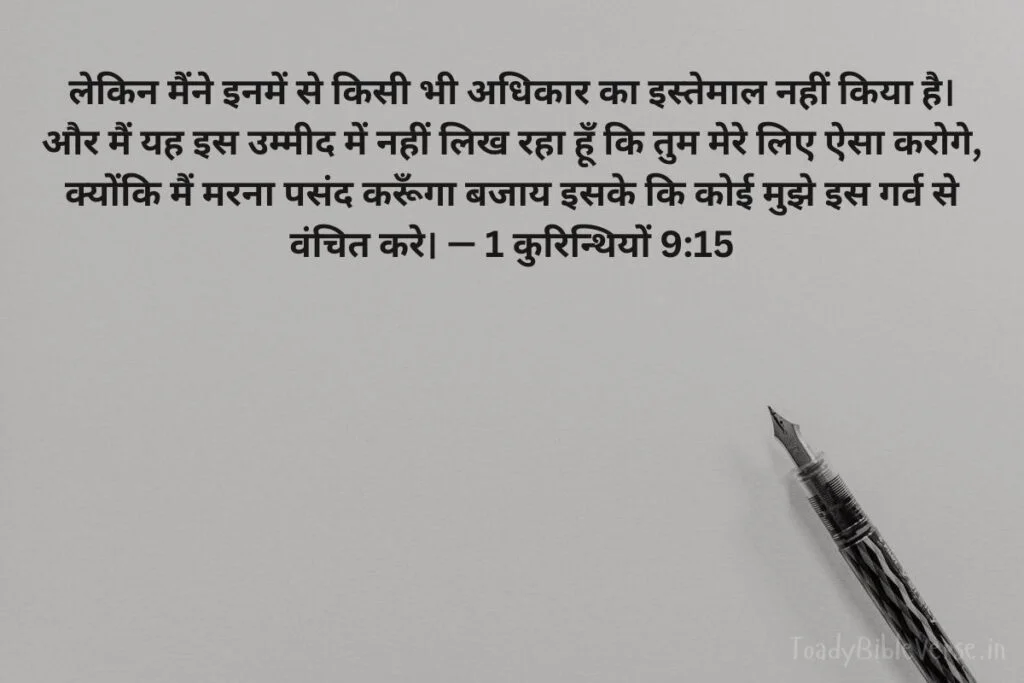 लेकिन मैंने इनमें से किसी भी अधिकार का इस्तेमाल नहीं किया है।
और मैं यह इस उम्मीद में नहीं लिख रहा हूँ कि तुम मेरे लिए ऐसा करोगे,
क्योंकि मैं मरना पसंद करूँगा बजाय इसके कि कोई मुझे इस गर्व से
वंचित करे। — 1 कुरिन्थियों 9:15
ToadyBibleVerse.in